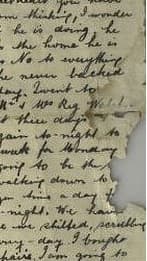 you have
am thinking, I wonder
he is doing he
the home he is
No to everything
he never backed
day. Went to
Mrs Reg
at three days
again to night to
week for Monday
going to be the
walking down to
time a day
night. We have
we chilled, scrubbing
day I bought
chairs. I am going to